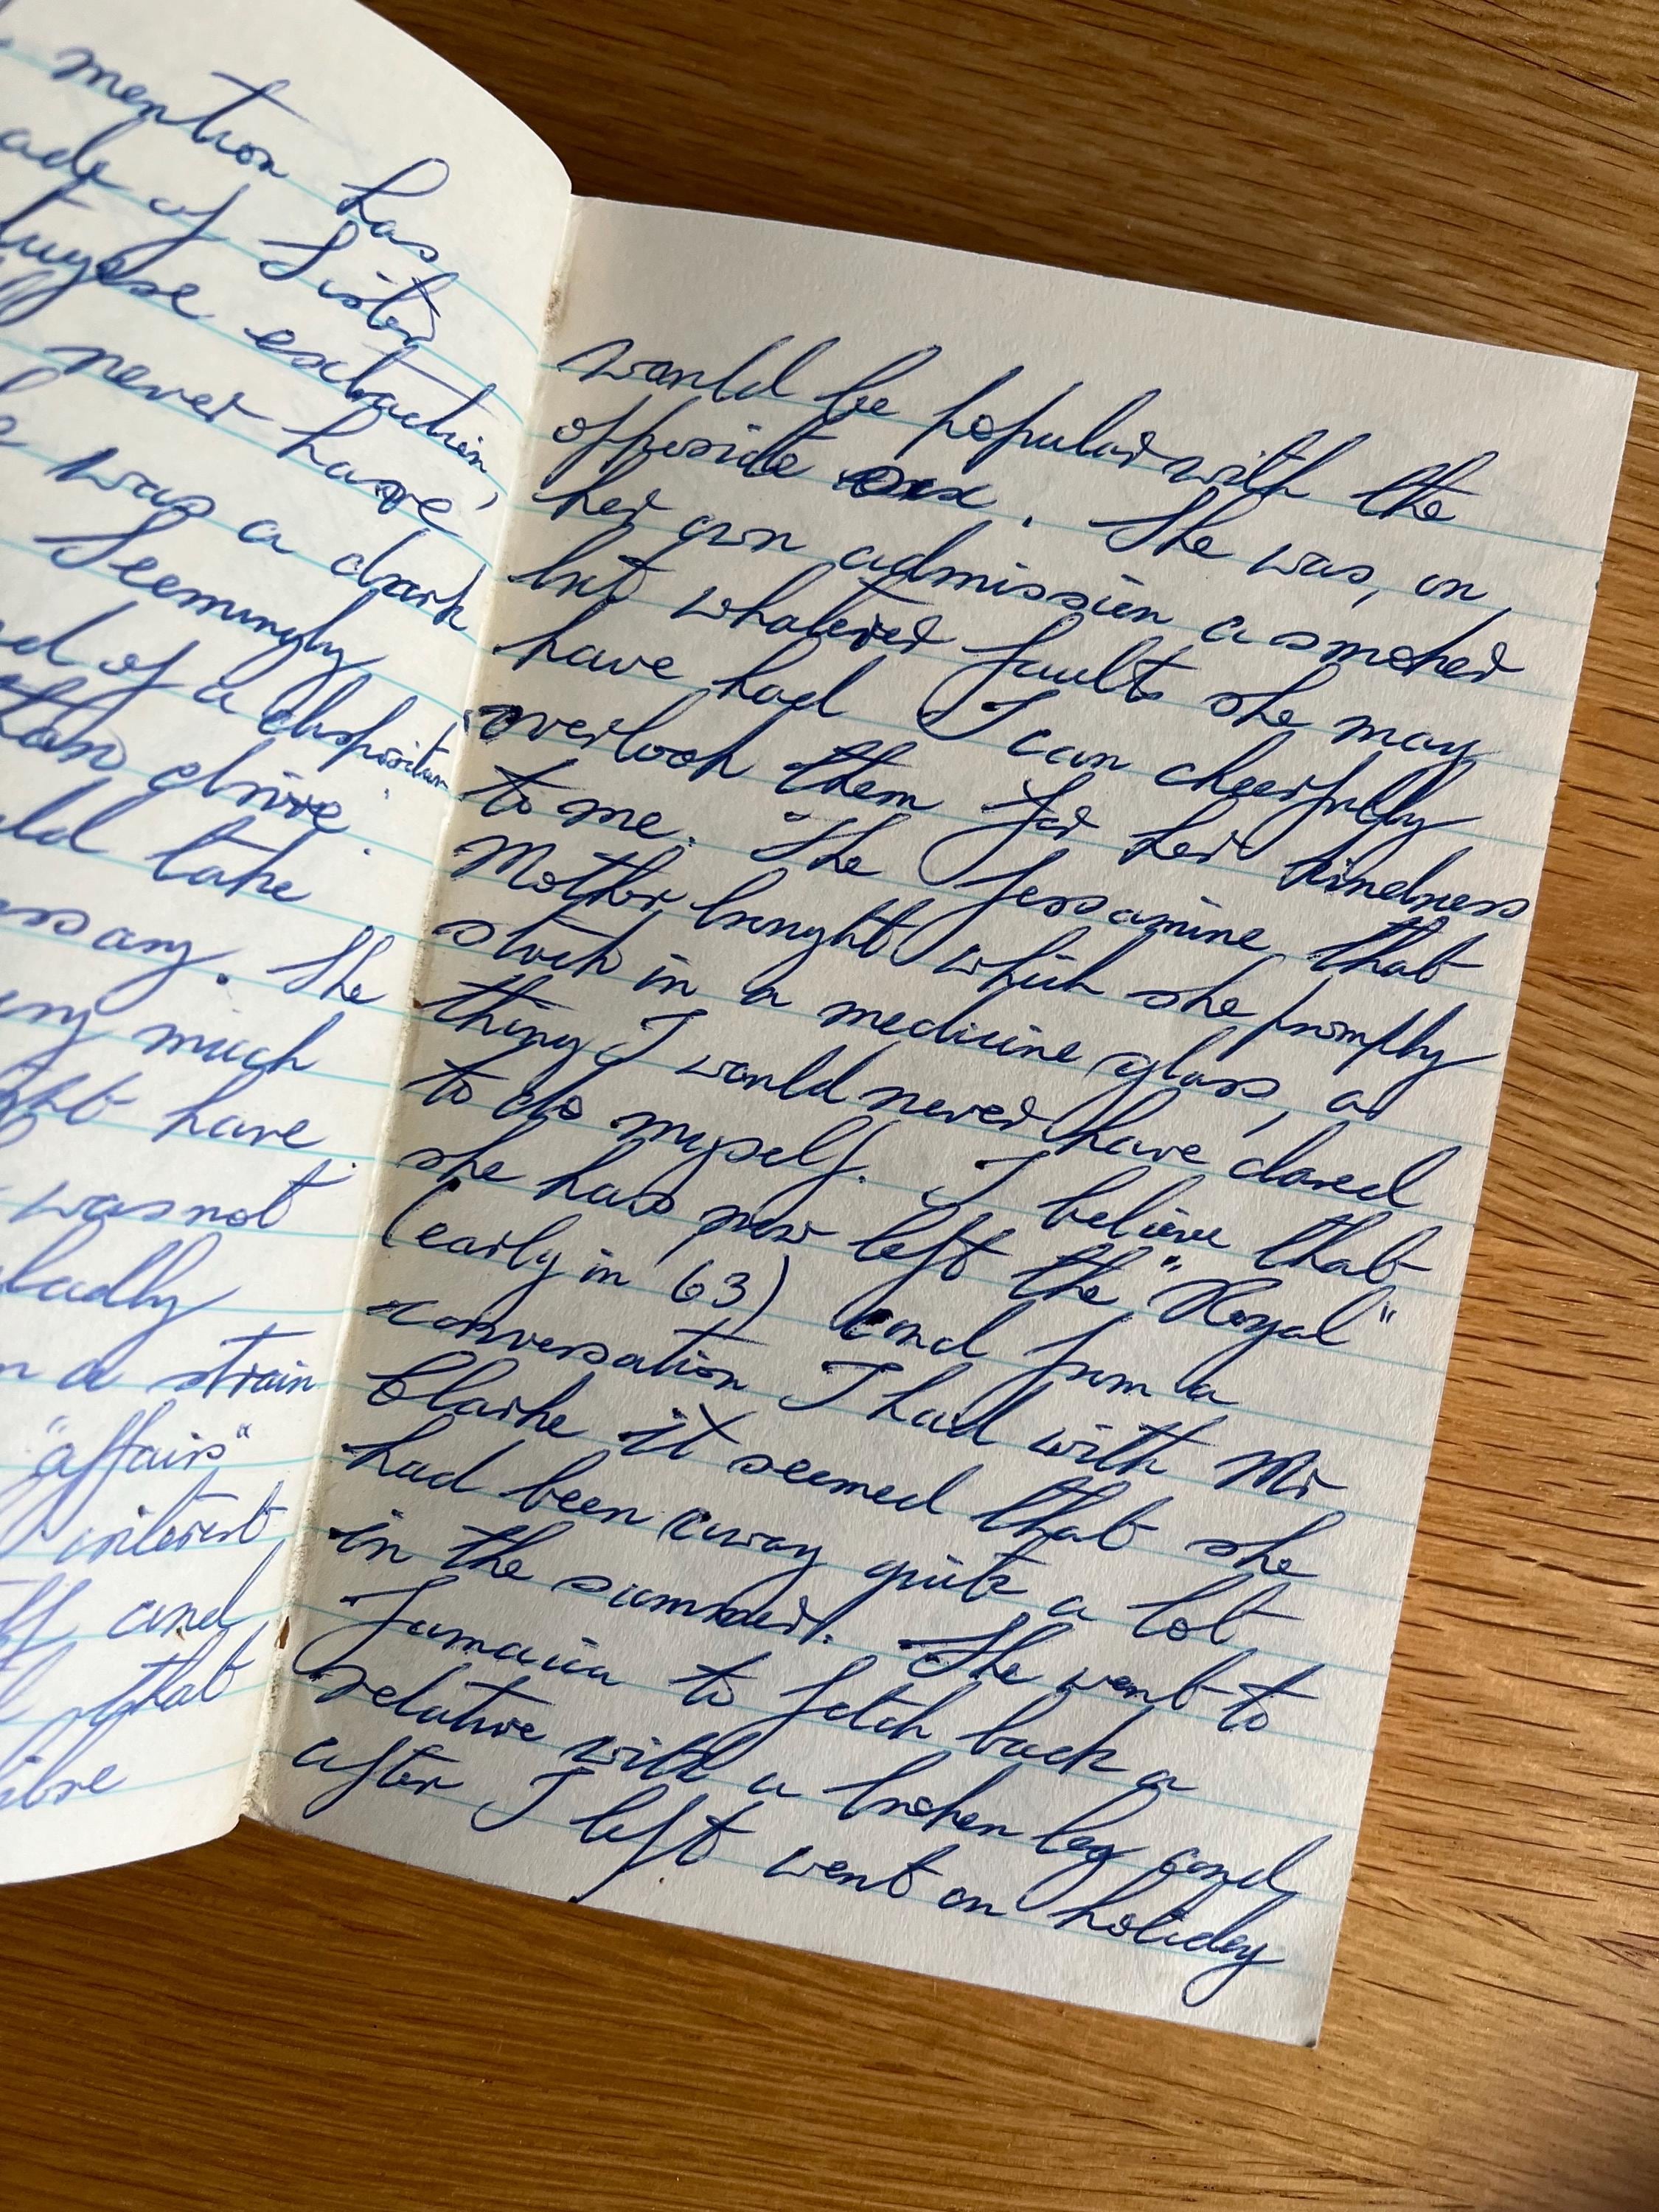 mention has
of Sister
extraction,
never have
was a dark
Seemingly
of a disposition
drive.
take
She
much
have
was not
badly
a strain
"affairs"
interest
and
that
would be popular with the
opposite sex. She was, on
her own admission a smoker
but whatever faults she may
have had I can cheerfully
overlook them for her kindness
to me. The Jessamine that
Mother brought which she promptly
stuck in a medicine glass, a
thing I would never have dared
to do myself. I believe that
she has now left the "Royal"
(early in '63) and from a
conversation I had with Mr
Clarke it seemed that she
had been away quite a lot
in the summer. She went to
Jamaica to fetch back a
relative with a broken leg and
after I left went on holiday